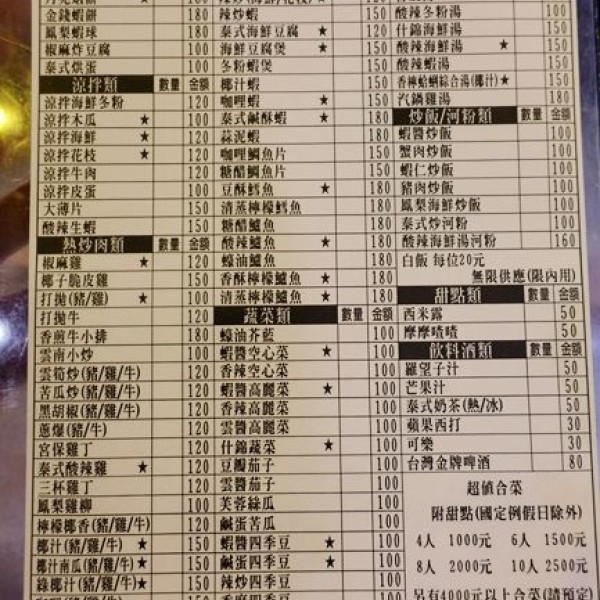 金錢蝦餅 180
鳳梨蝦球 180
椒麻炸豆腐 100
泰式烘蛋 100
涼拌類 數量 金額
涼拌海鮮冬粉 120
涼拌木瓜 ★ 100
涼拌海鮮 ★ 120
涼拌花枝 ★ 120
涼拌牛肉 120
涼拌皮蛋 100
大薄片 150
酸辣生蝦 150
熱炒肉類 數量 金額
椒麻雞 ★ 120
椰子脆皮雞 150
打拋(豬/雞) ★ 100
打拋牛 120
香煎牛小排 180
雲南小炒 100
雲筍炒(豬/雞/牛) 120
苦瓜炒(豬/雞/牛) 120
黑胡椒(豬/雞/牛) 120
蔥爆(豬/牛) 120
宮保雞丁 120
泰式酸辣雞 ★ 120
三杯雞丁 120
鳳梨雞柳 100
檸檬椰香(豬/雞/牛) 150
椰汁(豬/雞/牛) ★ 150
椰汁南瓜(豬/雞/牛)★ 150
綠椰汁(豬/雞/牛)★ 150
辣炒蝦 150
泰式海鮮豆腐 ★ 120
海鮮豆腐煲 ★ 120
冬粉蝦煲 150
椰汁蝦 150
咖哩蝦 ★ 150
泰式鹹酥蝦 ★ 180
蒜泥蝦 150
咖哩鯛魚片 150
糖醋鯛魚片 150
豆酥鱈魚 ★ 180
清蒸檸檬鱈魚 180
糖醋鱸魚 180
酸辣鱸魚 ★ 180
蠔油鱸魚 180
香酥檸檬鱸魚 ★ 180
清蒸檸檬鱸魚 ★ 180
蔬菜類 數量 金額
蠔油芥藍 100
蝦醬空心菜 ★ 100
香辣空心菜 100
蝦醬高麗菜 ★ 100
香辣高麗菜 100
雲醬高麗菜 100
什錦蔬菜 ★ 100
豆瓣茄子 100
雲醬茄子 100
芙蓉絲瓜 100
鹹蛋苦瓜 100
蝦醬四季豆 ★ 100
鹹蛋四季豆 ★ 100
辣炒四季豆 100
香麻四季豆 100
酸辣冬粉湯 100
什錦海鮮湯 120
酸辣海鮮湯 ★ 150
酸辣蝦湯 150
香檸蛤蜊綜合湯(椰汁)★ 150
汽鍋雞湯 180
炒飯/河粉類 數量 金額
蝦醬炒飯 100
蟹肉炒飯 100
蝦仁炒飯 100
豬肉炒飯 100
鳳梨海鮮炒飯 100
泰式炒河粉 100
酸辣海鮮湯河粉 160
白飯 每位20元
無限供應(限內用)
甜點類 數量 金額
西米露 50
摩摩喳喳 50
飲料酒類 數量 金額
羅望子汁 50
芒果汁 50
泰式奶茶(熱/冰) 50
蘋果西打 30
可樂 30
台灣金牌啤酒 80
超值合菜
附甜點(國定例假日除外)
4人 1000元 6人 1500元
8人 2000元 10人 2500元
另有4000元以上合菜(請預定)